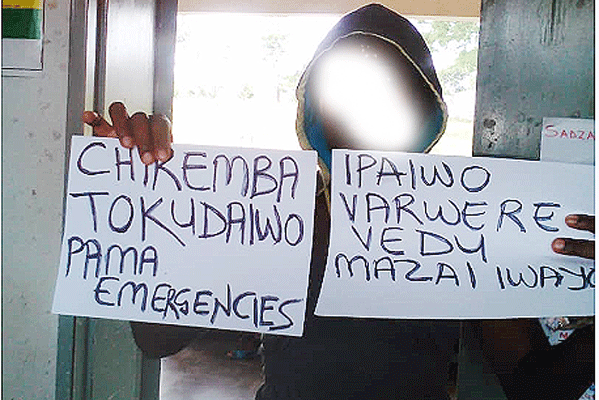 CHIREMBA
TOKUDAIWO
PAMA
EMERGENCIES
IPAIWO
VARWERE
VEDU
MAZAI IWAYO
SADZA